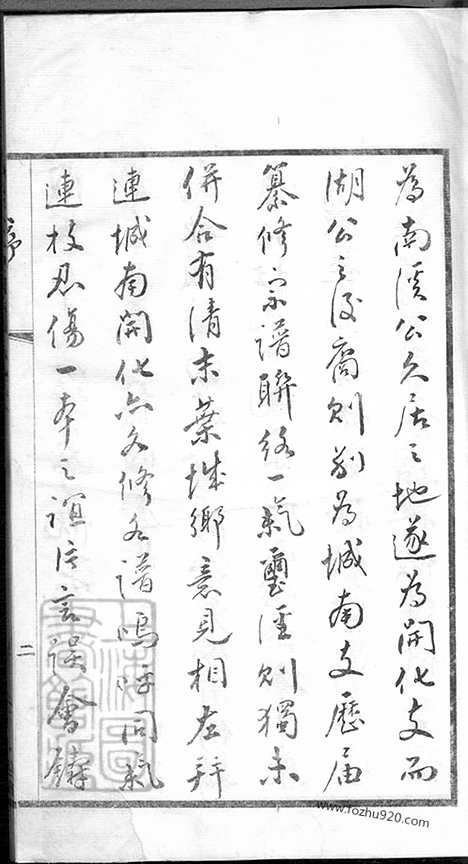 為南溪公久居之地遂為開化支而
湖公之後裔則別為城南支歷屆
纂修宗譜聯絡一氣璽涇則獨未
併合有清末葉城鄉意見相左辞
連城南開化亦各修各譜嗚呼同氣
連枝忍傷一本之誼片言誤會
序
二
www.fozhu920.com